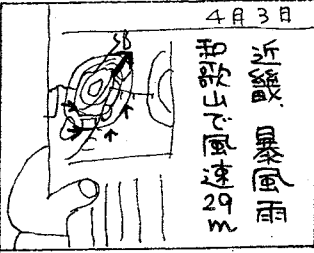 4月3日
近畿、暴風雨
和歌山で風速29m